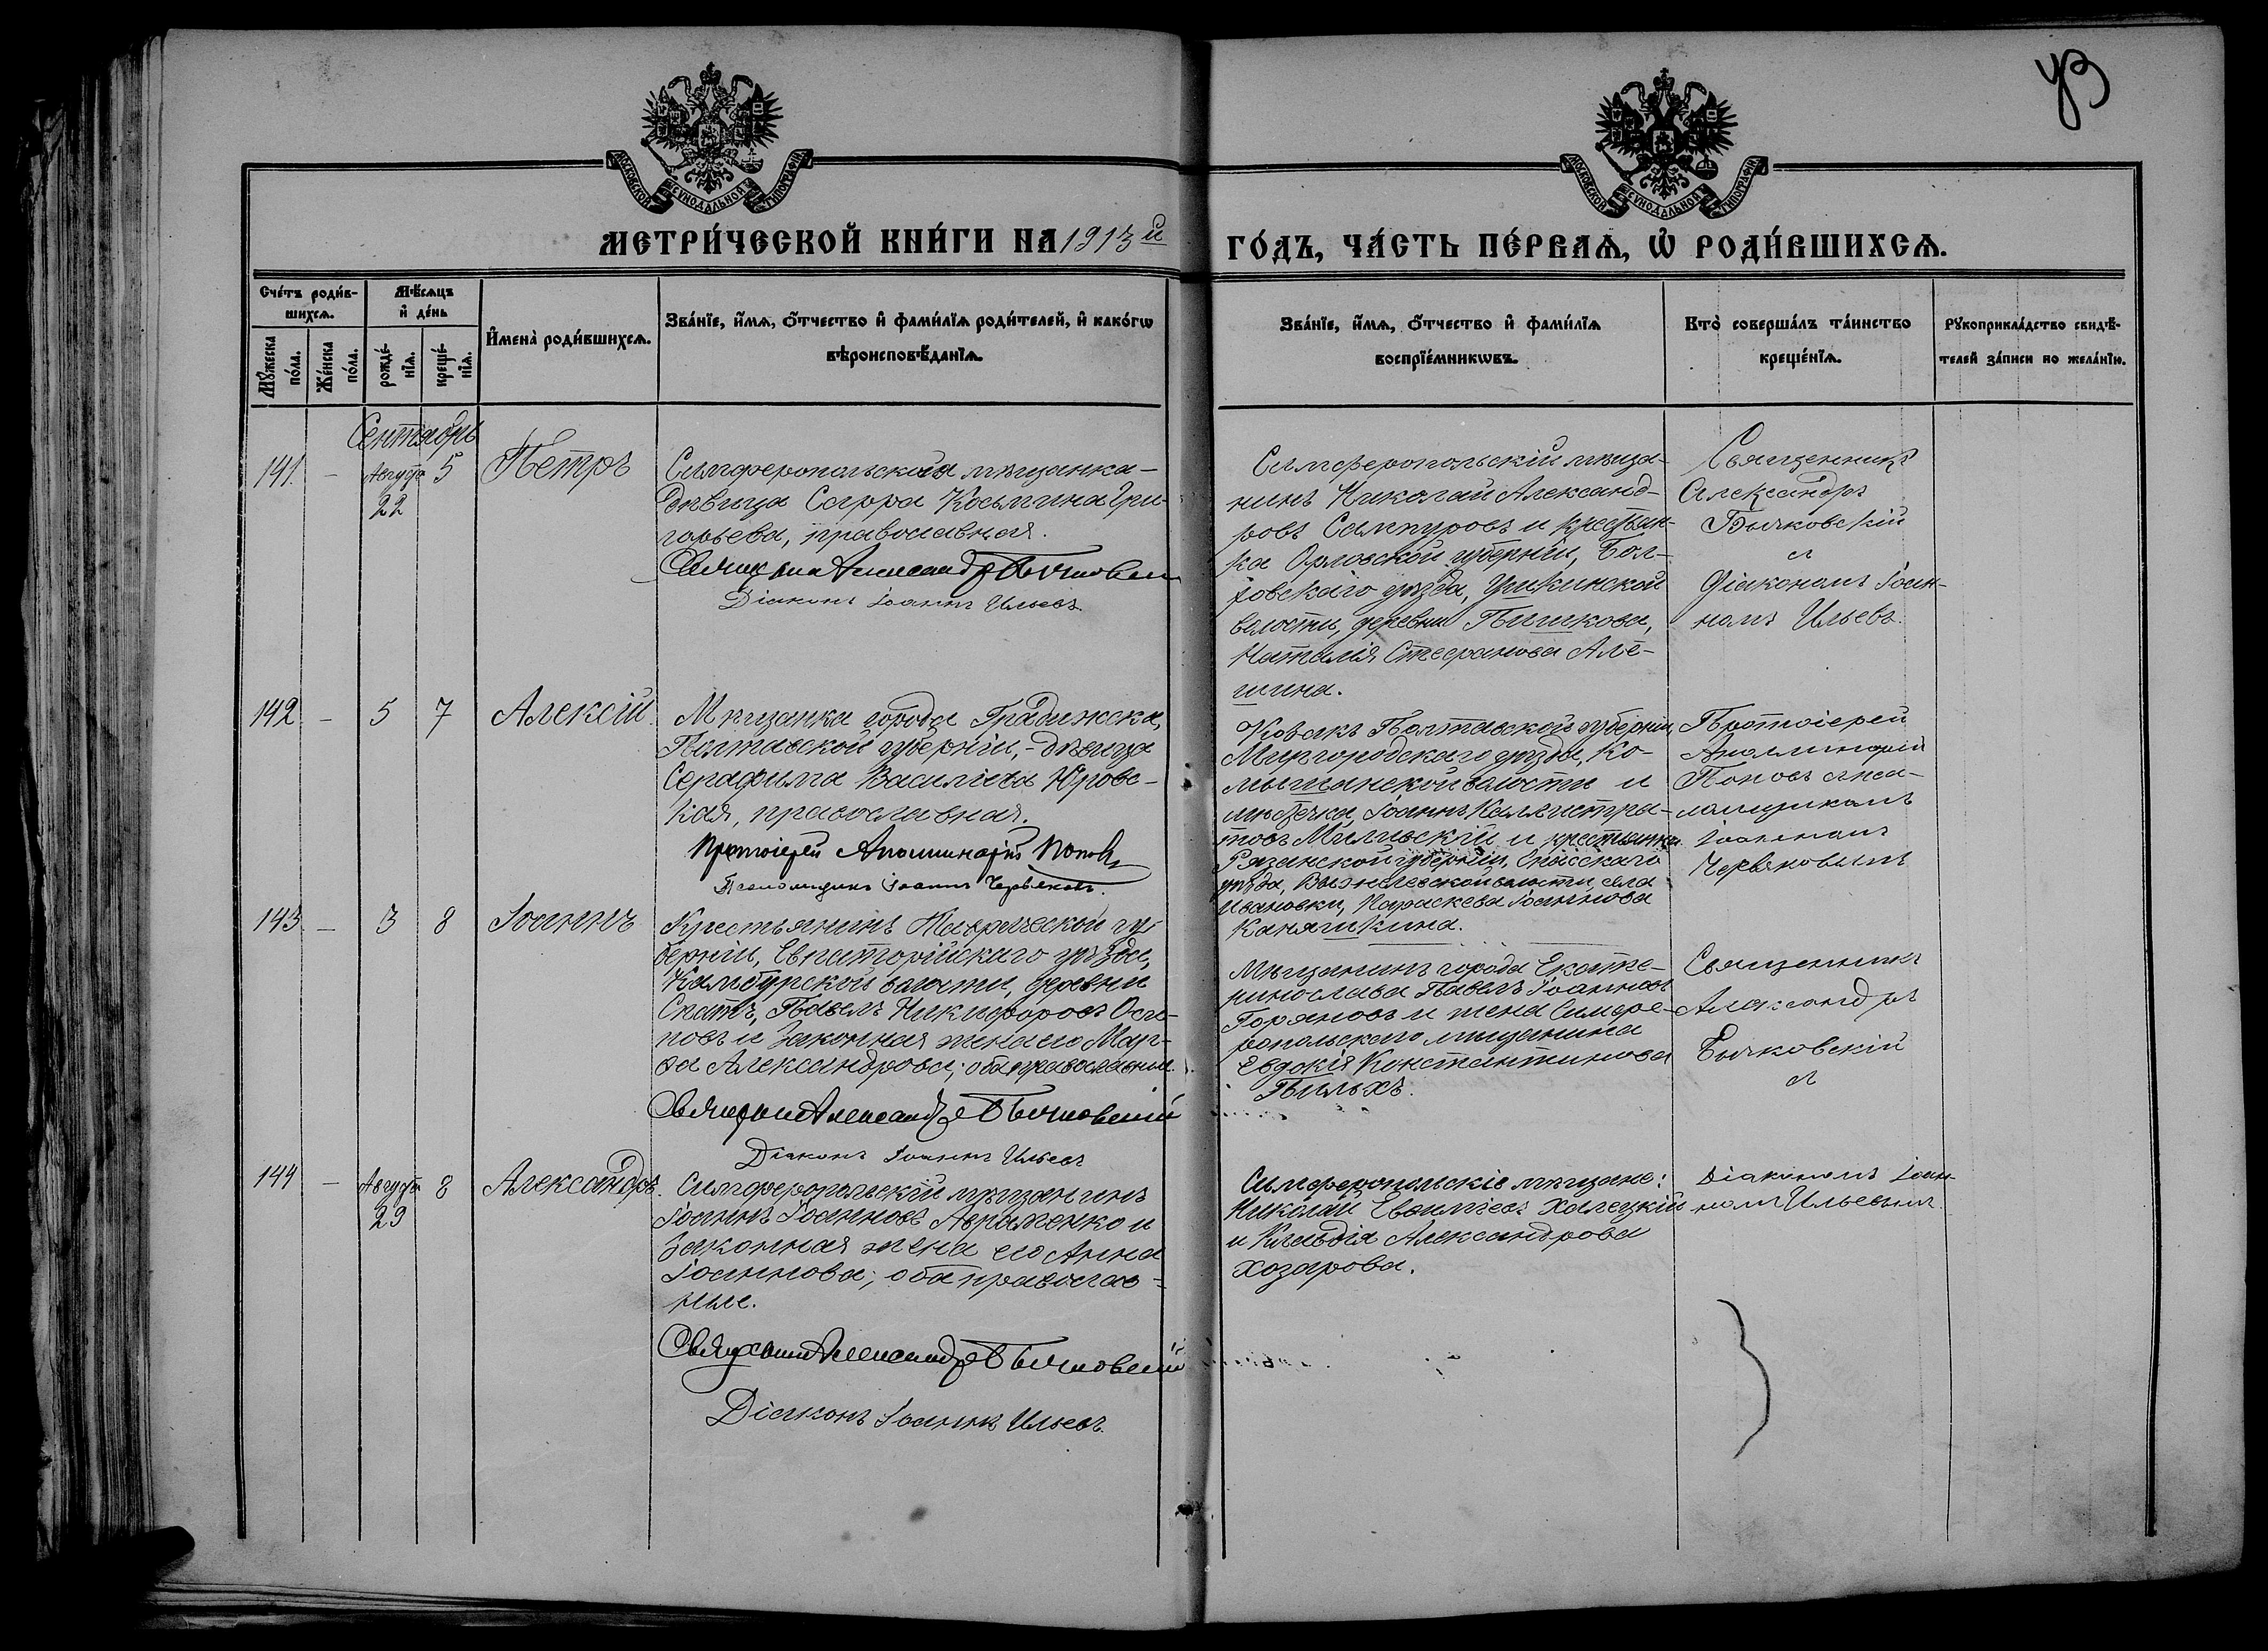 уз
МОСКОВСКОЙ СѴНОДАЛЬНОЙ ТИПОГРАФІИ
МОСКОВСКОЙ СѴНОДАЛЬНОЙ ТИПОГРАФІИ
МЕТРИ́ЧЕСКОЙ КНИ́ГИ НА 1913й
ГО́ДЪ, ЧА́СТЬ ПЕ́РВАѦ, Ѡ҆ РОДИ́ВШИХСѦ.
Сче́тъ роди́в-
шихсѧ.
Мꙋ́жеска по́ла.
Же́нска по́ла.
Мѣ́сѧцъ
и҆ де́нь
рожде́-
нїѧ.
креще́-
нїѧ.
И҆мена̀ роди́вшихсѧ.
Зва́нїе, и҆́мѧ, ѻ҆́тчество и҆ фами́лїѧ роди́телей, и҆ како́гѡ
вѣроисповѣ́данїѧ.
Зва́нїе, и҆́мѧ, ѻ҆́тчество и҆ фами́лїѧ
воспрїе́мникѡвъ.
Кто̀ соверша́лъ та́инство
креще́нїѧ.
Рꙋкоприкла́дство свидѣ́-
телей за́писи по жела́нїю.
Сентябрь
141. — Августа 22 5 Петръ
Симферопольская мѣщанка —
дѣвица Сарра Косьмина Гри-
горьева, православная.
Александръ Бычковскій
Діаконъ Іоаннъ Ильевъ
Симферопольскій мѣща-
нинъ Николай Александ-
ровъ Сампуровъ и крестьян-
ка Орловской губерніи, Бол-
ховскаго уѣзда,
волости, деревни
Наталія Стефанова Але-
шина.
Священникъ
Александръ
Бычковскій
съ
Діакономъ Іоан-
номъ Ильевъ.
142 — 5 7 Алексій.
Мѣщанка города Градижска,
Полтавской губерніи, – дѣвица
Серафима Василіева Юровс-
кая, православная.
Протоіерей Аполлинарій Поповъ
Псаломщикъ Іоаннъ Червяковъ.
Козакъ Полтавской губерніи,
Миргородскаго уѣзда, Ко-
мышанской волости и
мѣстечка, Іоаннъ Каллистра-
товъ и крестьянка
Рязанской губерніи, Спасскаго
уѣзда, волости, села
Ивановки, Параскева Іоаннова
Каняшкина.
Протоіерей
Аполлинарій
Поповъ съ пса-
ломщикомъ
Іоанномъ
Червяковымъ
143. — 3 8 Іоаннъ
Крестьянинъ Таврической гу-
берніи, Евпаторійскаго уѣзда,
Камбурской волости, деревни
Спатъ, Павелъ Никифоровъ Оси-
повъ и законная жена его Мар-
ѳа Александрова; оба православные.
Александръ Бычковскій
Діаконъ Іоаннъ Ильевъ
Мѣщанинъ города Екате-
ринослава Павелъ Іоанновъ
Горяновъ и жена Симфе-
ропольскаго мѣщанина
Евдокія Константинова
Пильхъ.
Священникъ
Александръ
Бычковскій
съ
144 — Августа 29 8 Александръ.
Симферопольскій мѣщанинъ
Іоаннъ Іоанновъ Авраменко и
законная жена его Анна
Іоаннова; оба православ-
ные.
Александръ Бычковскій
Діаконъ Іоаннъ Ильевъ.
Симферопольскіе мѣщане:
Николай Евѳиміевъ Халецкій
и Клавдія Александрова
Хозарова.
Діакономъ Іоан-
номъ Ильевымъ.